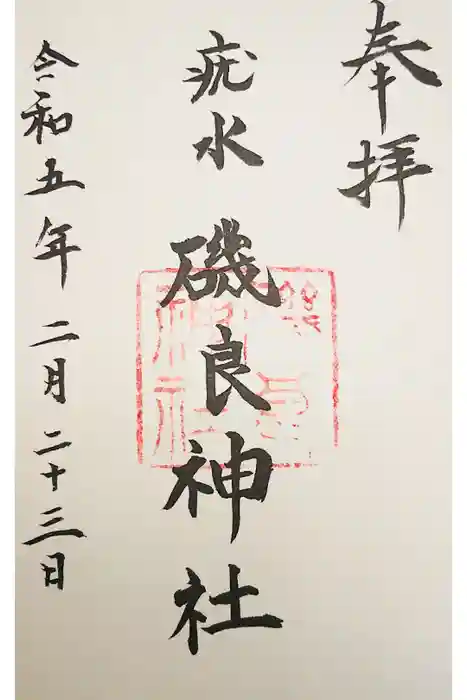 奉拝
疣水 磯良神社
令和五年 二月二十三日